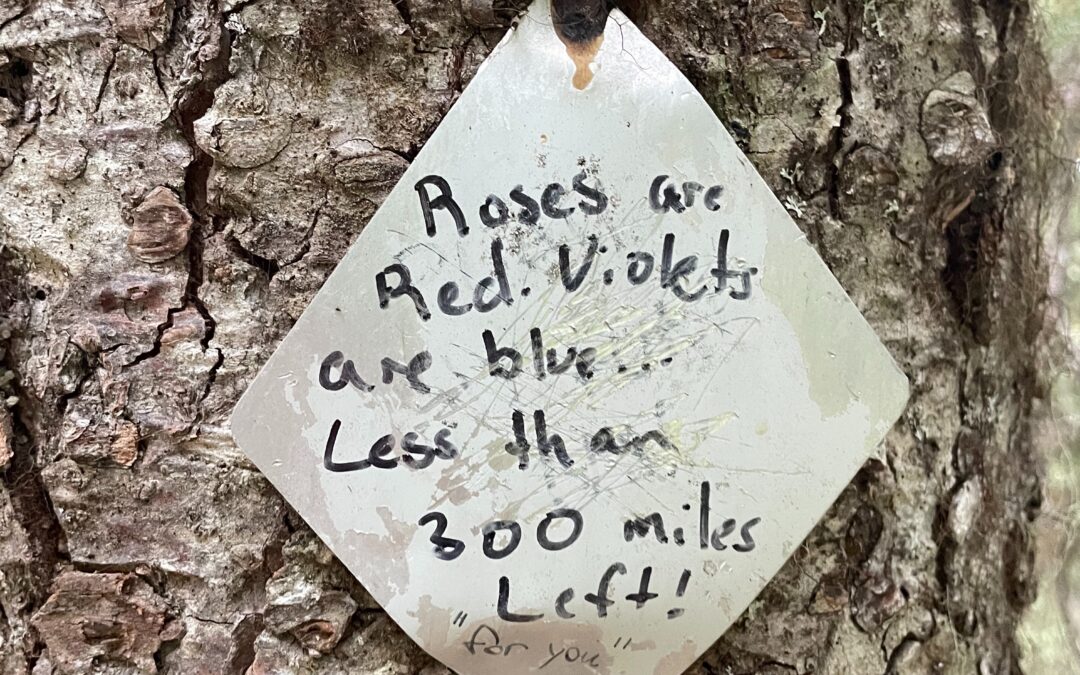 Roses are
Red. Violets
are blue...
Less than
300 miles
Left!
"for you"